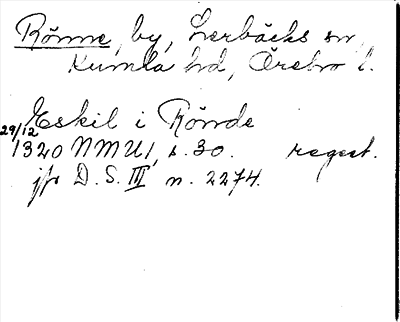 Rönne, by, Lerbäcks sn,
Kumla hd, Örebro l.
Eskil i Rönde
29/12
1320 NMU1, s. 30. regest.
jfr D. S. III n. 2274.